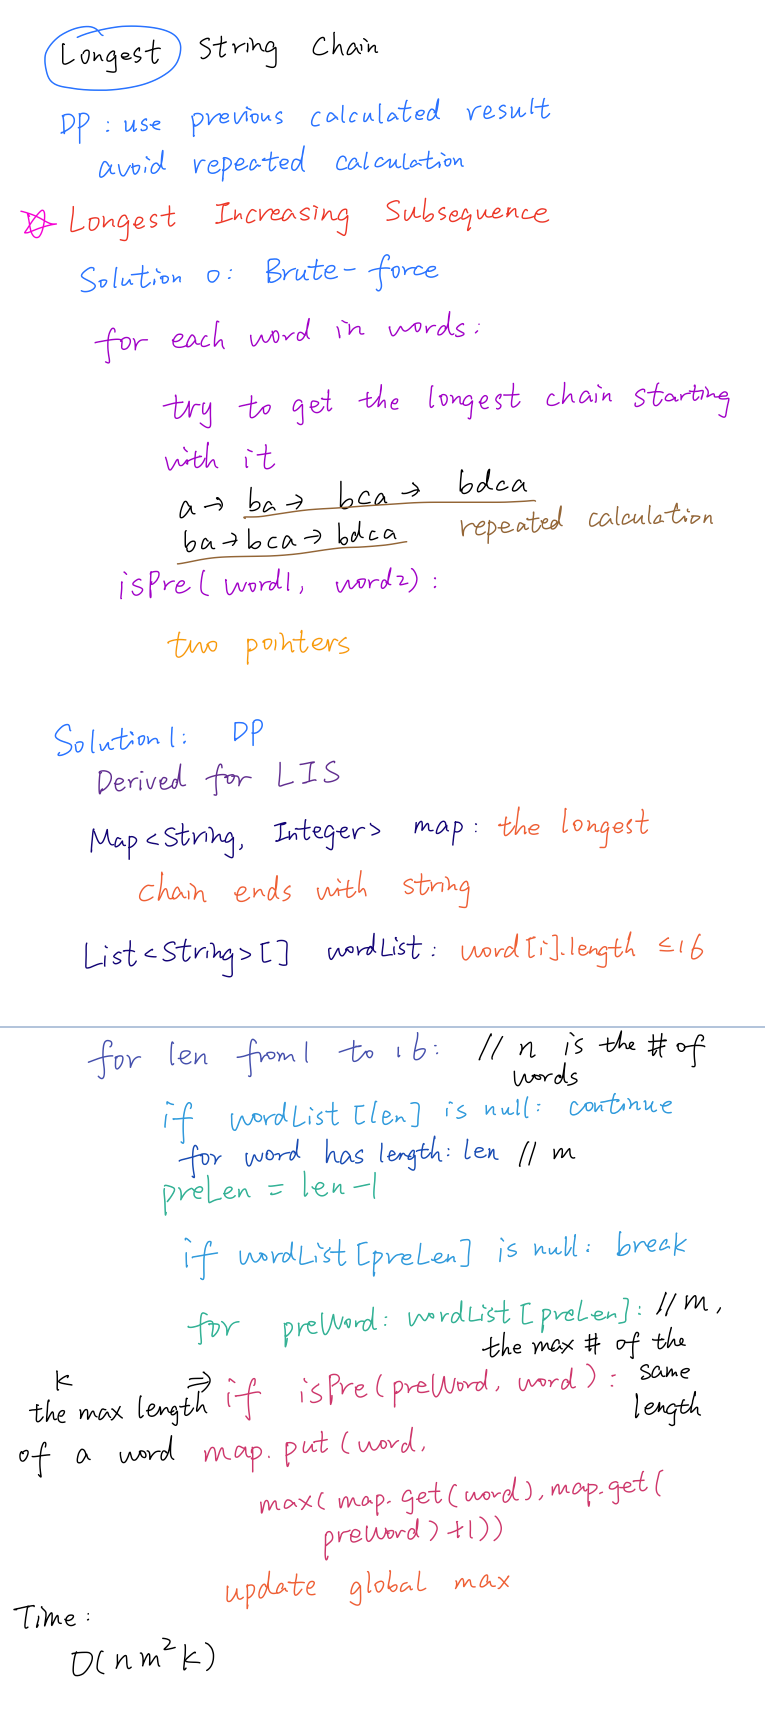 Longest String Chain
DP: use previous calculated result
avoid repeated calculation
Longest Increasing Subsequence
Solution 0: Brute-force
for each word in words:
try to get the longest chain starting
with it
a → ba → bca → bdca
ba → bca → bdca repeated calculation
isPre(word1, word2):
two pointers
Solution 1: DP
Derived for LIS
Map<String, Integer> map: the longest
chain ends with string
List<String>[] wordList: word[i].length ≤ 16
for len from 1 to 16: // n is the # of
words
if wordList[len] is null: continue
for word has length: len // m
preLen = len-1
if wordList[preLen] is null: break
for preWord: wordList[preLen]: // m,
the max # of the
same
length
k
the max length
of a word
⇒ if isPre(preWord, word):
map.put(word,
max(map.get(word), map.get(
preWord)+1))
update global max
Time:
O(nm²k)